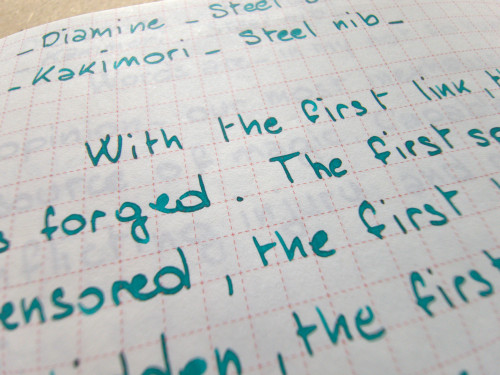 - Diamine - Steel
- Kakimori - Steel nib -
With the first link,
forged. The first
ensored, the first
the first